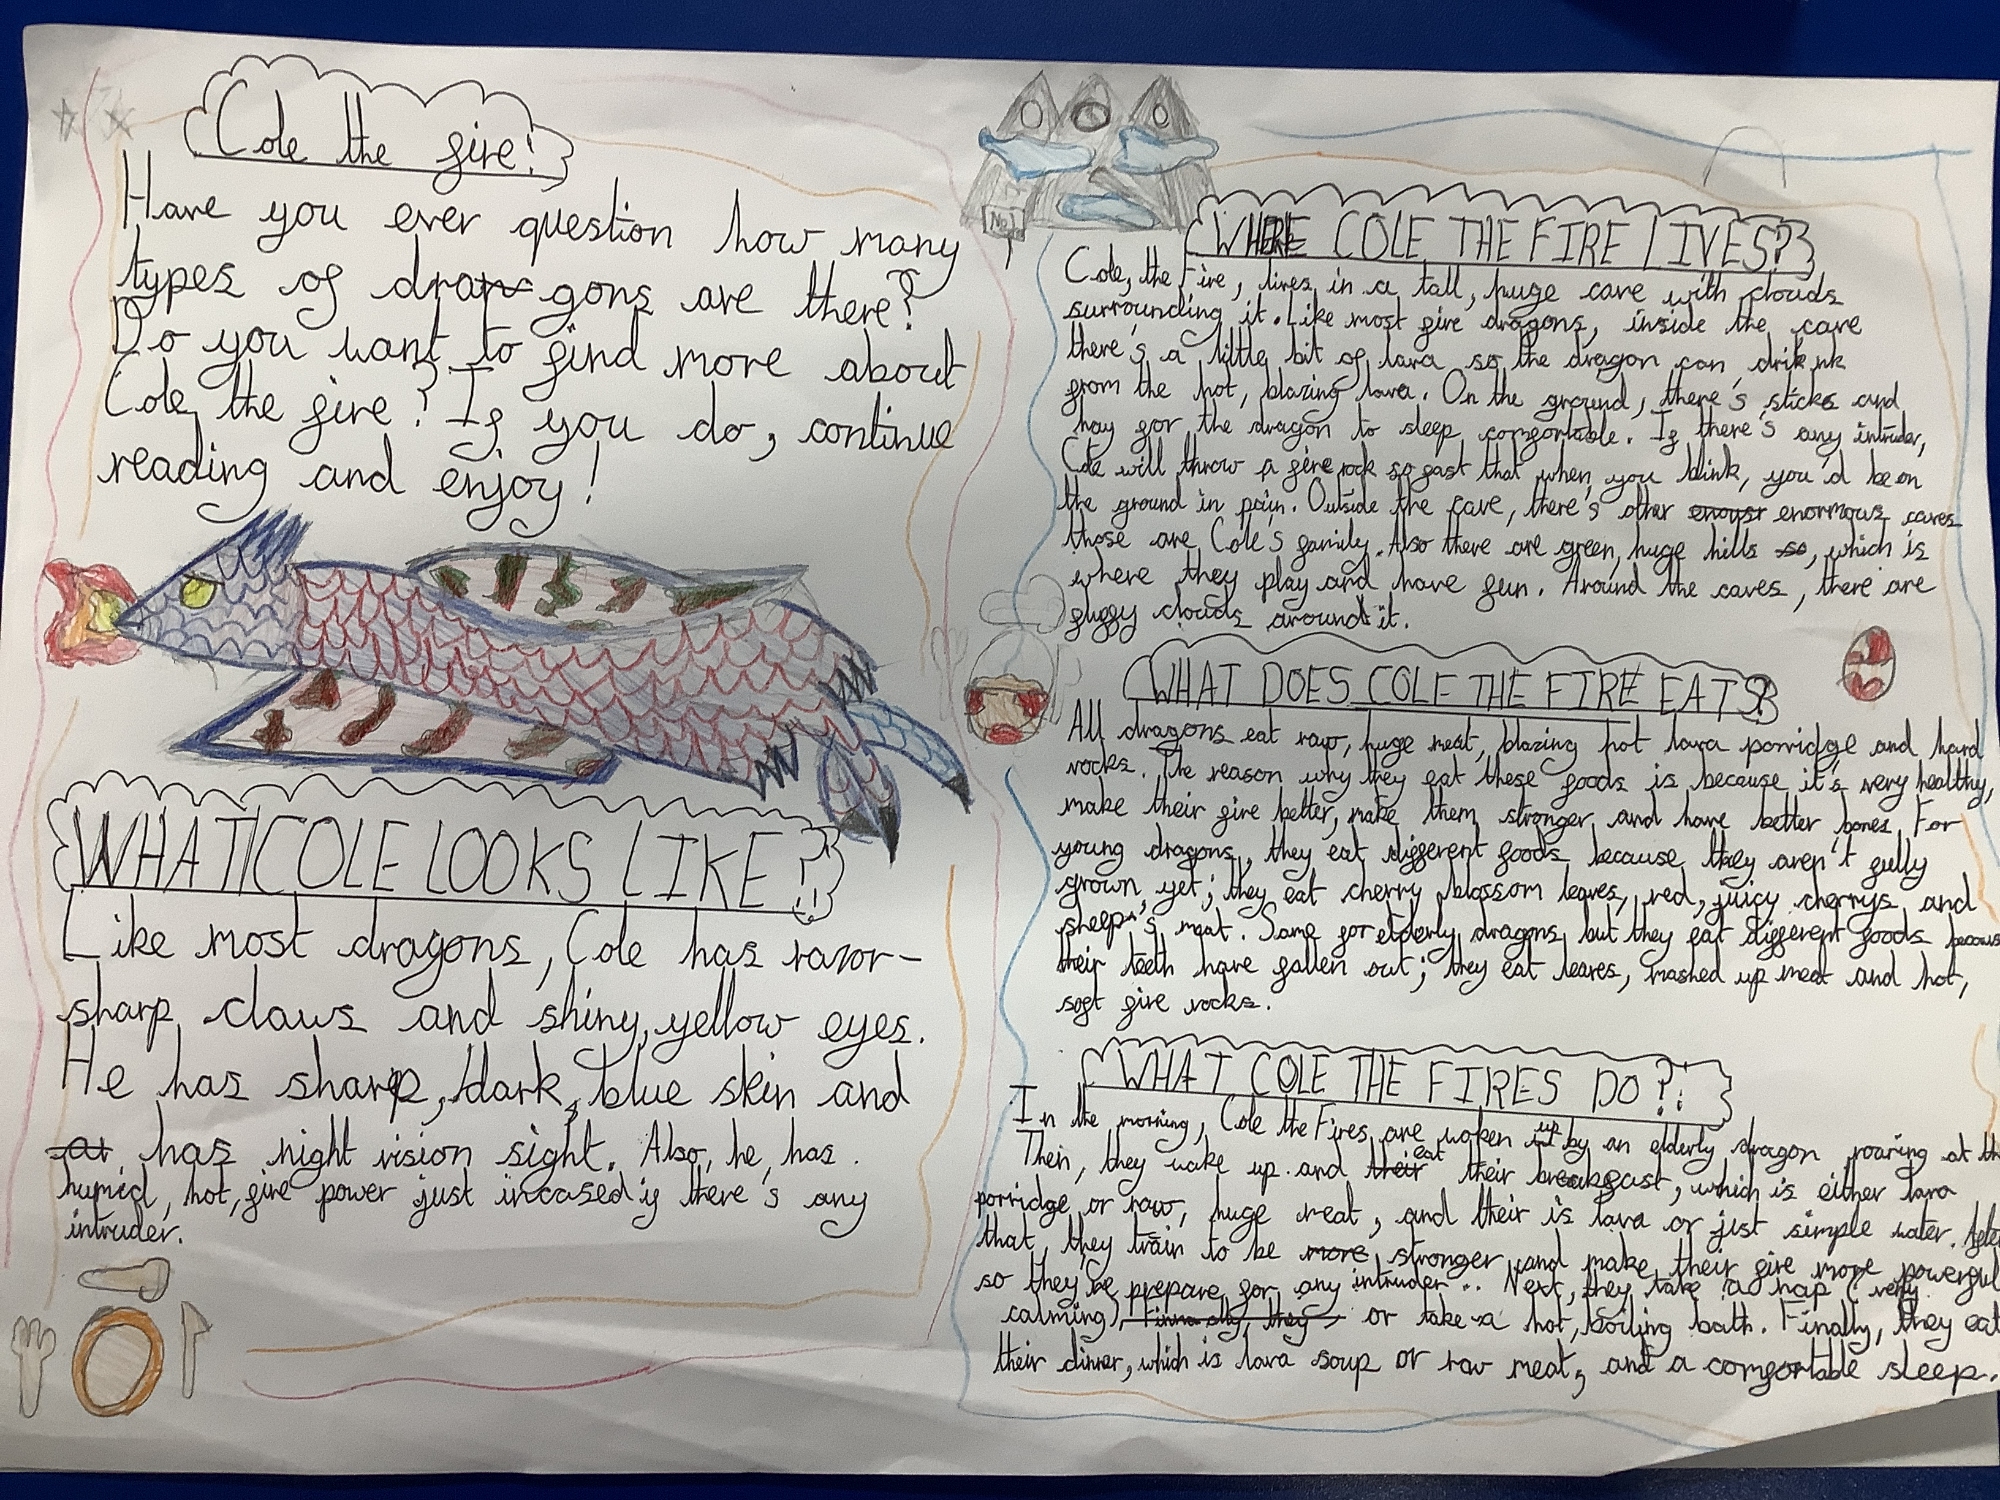 Cole the fire!
Have you ever question how many
types of dragons are there?
Do you want to find more about
Cole the fire? If you do, continue
reading and enjoy!
WHAT COLE LOOKS LIKE?!
Like most dragons, Cole has razor-
sharp claws and shiny, yellow eyes.
He has sharp, dark, blue skin and
has night vision sight. Also, he has
humed, hot, fire power just incased if there's any
intruder.
No1
WHERE COLE THE FIRE LIVES?
Cole, the Fire, lives in a tall, huge cave with clouds
surrounding it. Like most fire dragons, inside the cave
there's a little bit of lava so the dragon can drink
from the hot, blazing lava. On the ground, there's sticks and
hay for the dragon to sleep comfortable. If there's any intruder,
Cole will throw a fire rock so fast that when you blink, you'd be on
the ground in pain. Outside the cave, there's other enormous caves
those are Cole's family. Also there are green, huge hills, which is
where they play and have fun. Around the caves, there are
fluffy clouds around it.
WHAT DOES COLE THE FIRE EATS?
All dragons eat raw, huge meat, blazing hot lava porridge and hard
rocks. The reason why they eat these foods is because it's very healthy,
make their fire better, make them stronger and have better bones. For
young dragons, they eat different foods because they aren't fully
grown yet; they eat cherry blossom leaves, red, juicy cherrys and
sheep's meat. Same for elderly dragons but they eat different foods because
their teeth have fallen out; they eat leaves, mashed up meat and hot,
soft fire rocks.
WHAT COLE THE FIRES DO?!
In the morning, Cole the Fires are woken up by an elderly dragon roaring at
Then, they wake up and eat their breakfast, which is either lava
porridge or raw, huge meat, and their is lava or just simple water.
that, they train to be stronger and make their fire more powerful
so they be prepare for any intruder... Next, they take a nap (very
calming) or take a hot, boiling bath. Finally, they eat
their dinner, which is lava soup or raw meat, and a comfortable sleep.